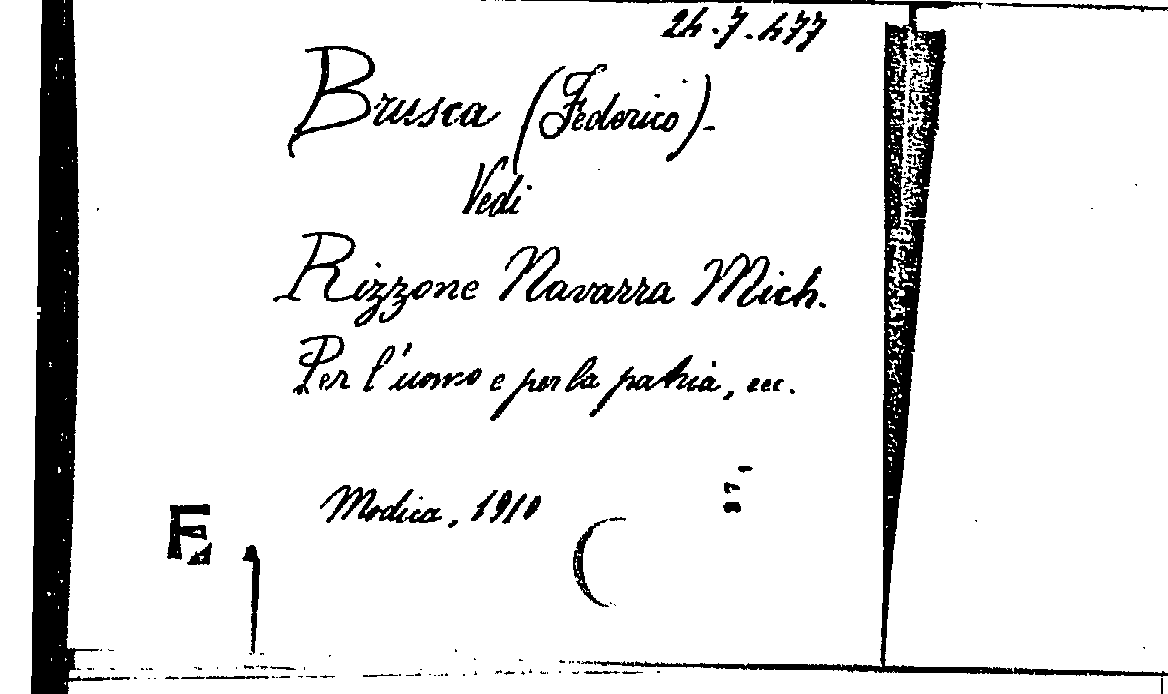 24.7.477
Brusca (Federico)-
Vedi
Rizzone Navarra Mich.
Per l'uomo e per la patria, ecc.
Modica, 1910